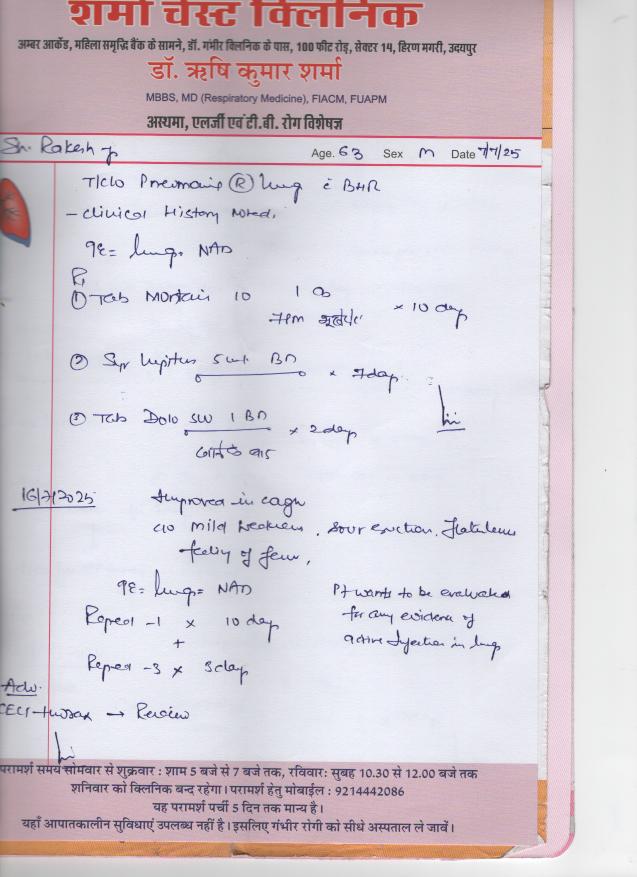 शर्मा चेस्ट क्लिनिक
अम्बर आर्केड, महिला समृद्धि बैंक के सामने, डॉ. गंभीर क्लिनिक के पास, 100 फीट रोड़, सेक्टर 14, हिरण मगरी, उदयपुर
डॉ. ऋषि कुमार शर्मा
MBBS, MD (Respiratory Medicine), FIACM, FUAPM
अस्थमा, एलर्जी एवं टी.बी. रोग विशेषज्ञ
Sh. Rakesh Age. 63 Sex M Date 7/7/25
T/C/O Pneumonia (R) lung c BHR
- Clinical History Noted.
lung = NAD
Rx
① Tab 10 1 × 10 day
7 PM
② Syp 5ml BD × 7 day
③ Tab Dolo 1 BD × 2 day
खाने के बाद
16/7/2025 Improved in cough
C/O Mild weakness, sour eruction, Flatulence
feeling of fever,
lung = NAD
Pt wants to be evaluated
for any evidence of
active infection in lung
Repeat -1 × 10 day
+
Repeat -3 × 3 day
Adv.
CECT-thorax → Review
परामर्श समय सोमवार से शुक्रवार : शाम 5 बजे से 7 बजे तक, रविवार: सुबह 10.30 से 12.00 बजे तक
शनिवार को क्लिनिक बन्द रहेगा। परामर्श हेतु मोबाईल : 9214442086
यह परामर्श पर्ची 5 दिन तक मान्य है।
यहाँ आपातकालीन सुविधाएं उपलब्ध नहीं है। इसलिए गंभीर रोगी को सीधे अस्पताल ले जावें।